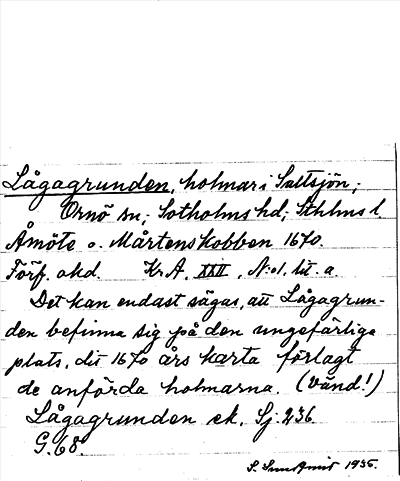 Lågagrunden, holmar i Saltsjön;
Ornö sn; Sotholms hd; Sthlms l.
Åmöte o. Mårtenskobben 1670.
Förf. okd. Kr.A. XXII, N:o1. lit. a.
Det kan endast sägas, att Lågagrun-
den befinna sig på den ungefärliga
plats, dit 1670 års karta förlagt
de anförda holmarna. (Vänd!)
Lågagrunden ek. Sj. 236.
G.68.
S. 1935.